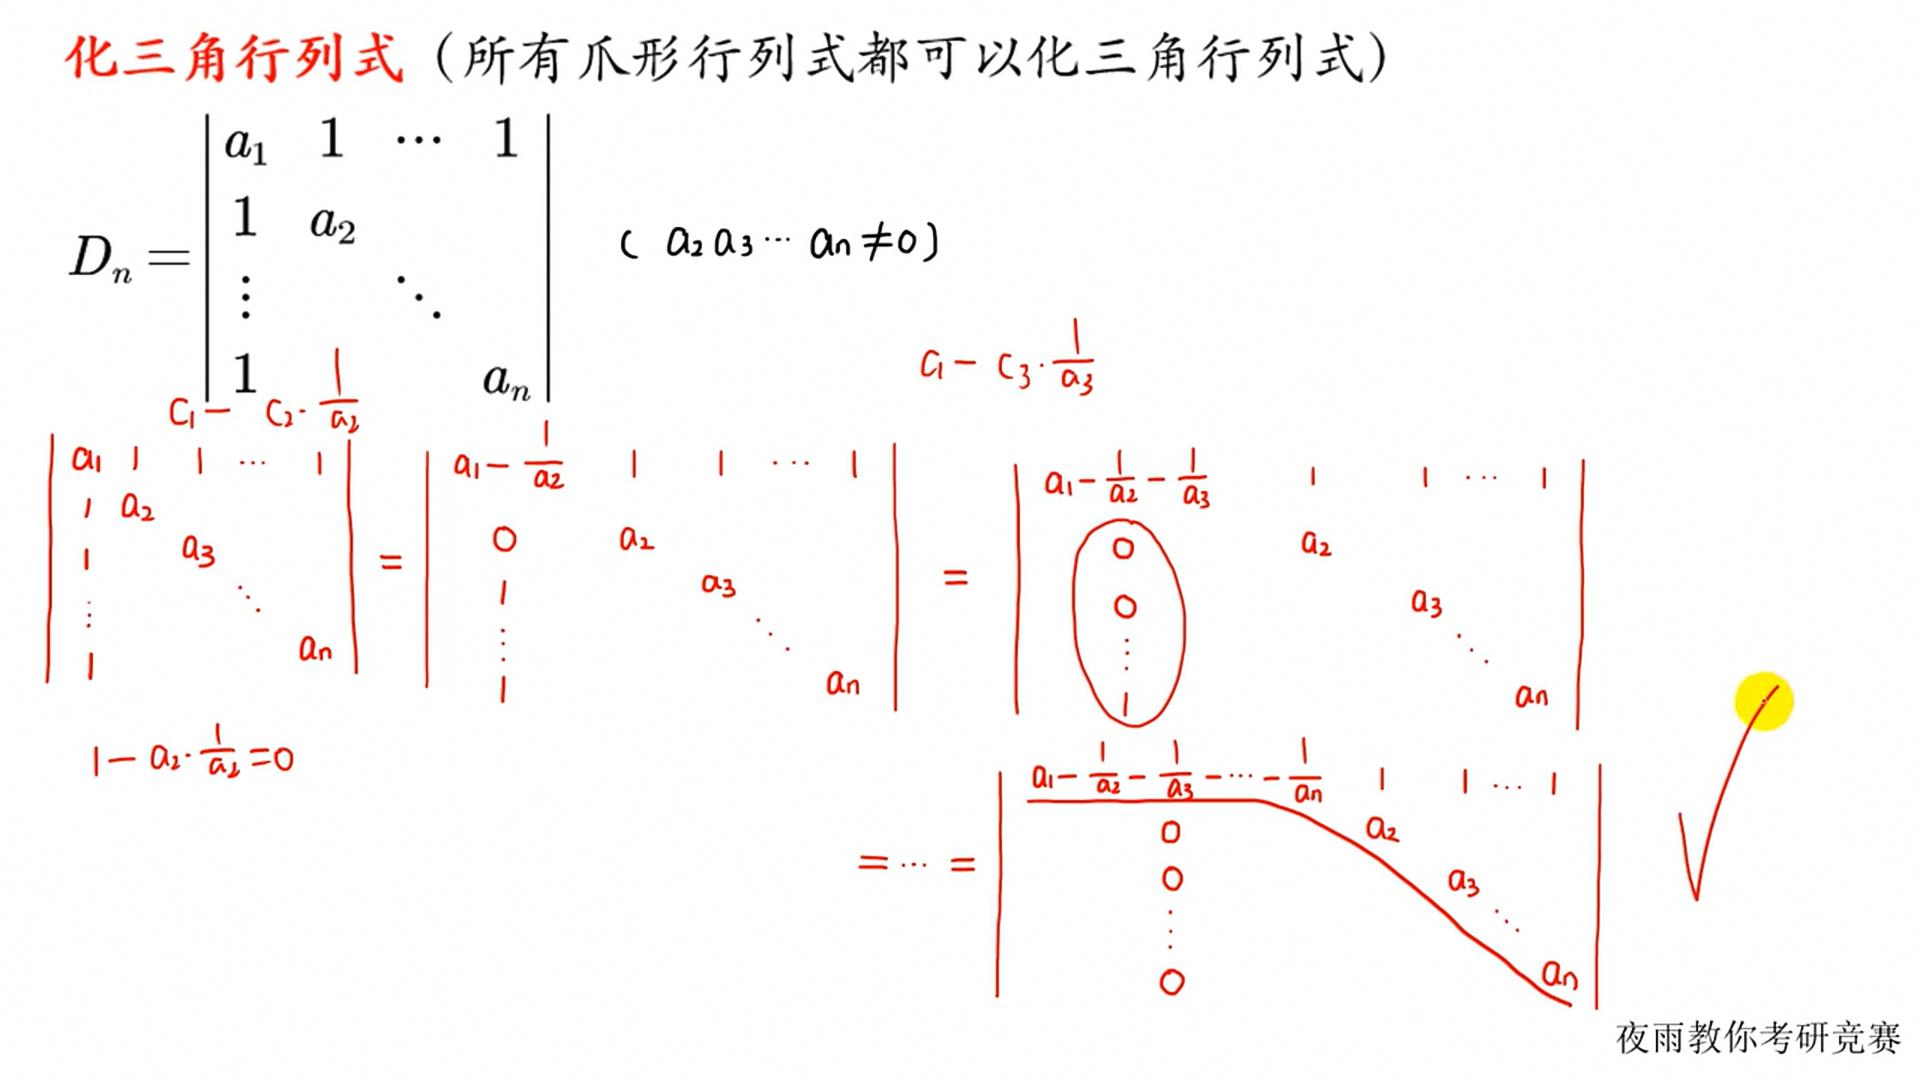 化三角行列式（所有爪形行列式都可以化三角行列式）
a₁ 1 ⋯ 1
1 a₂
Dₙ =
⋮ ⋱
1 aₙ
( a₂ a₃ ⋯ aₙ ≠ 0 )
C₁ − C₂ · 1/a₂
C₁ − C₃ · 1/a₃
a₁ 1 1 ⋯ 1
1 a₂
1 a₃
⋮ ⋱
1 aₙ
=
a₁ − 1/a₂ 1 1 ⋯ 1
0 a₂
1 a₃
⋮ ⋱
1 aₙ
=
a₁ − 1/a₂ − 1/a₃ 1 1 ⋯ 1
0 a₂
0 a₃
⋮ ⋱
1 aₙ
1 − a₂ · 1/a₂ = 0
= ⋯ =
a₁ − 1/a₂ − 1/a₃ − ⋯ − 1/aₙ 1 1 ⋯ 1
0 a₂
0 a₃
⋮ ⋱
0 aₙ
夜雨教你考研竞赛